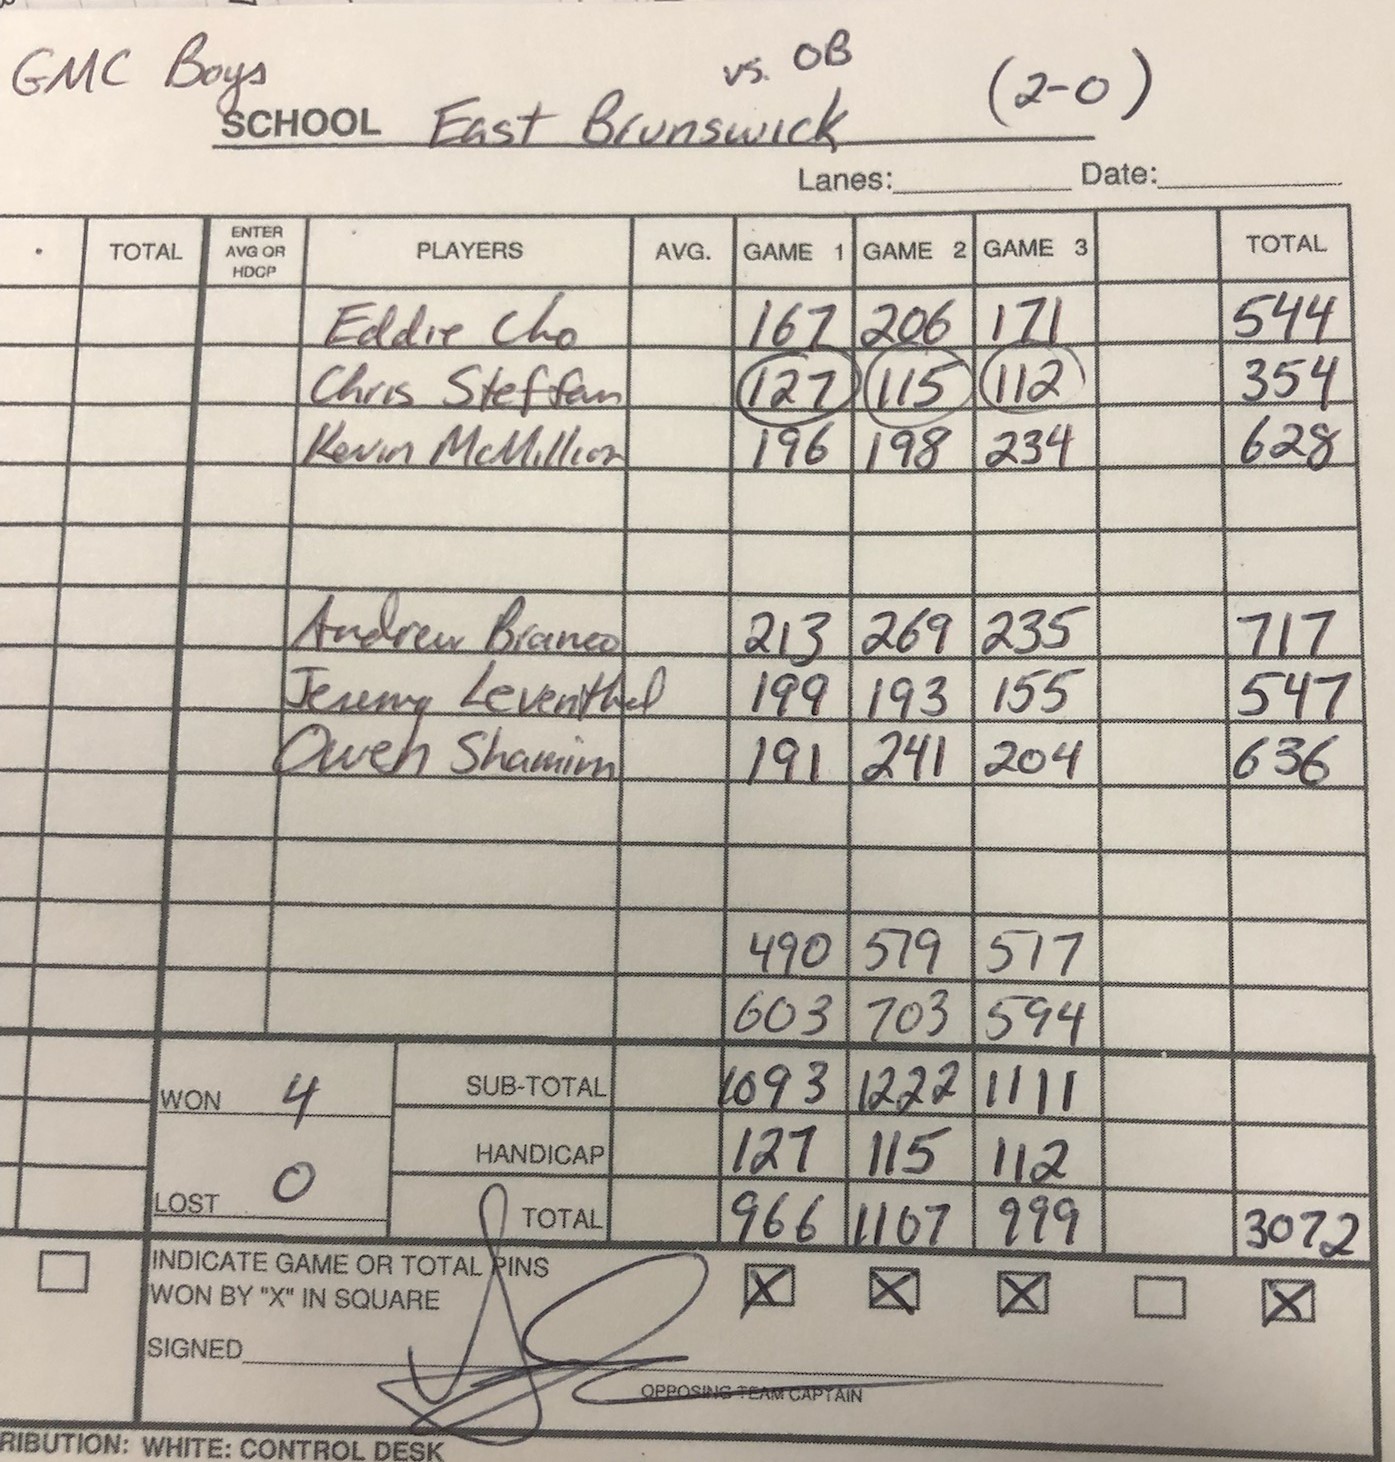 GMC Boys
vs. OB (2-0)
SCHOOL East Brunswick
Lanes: Date:
TOTAL ENTER AVG OR HDCP PLAYERS AVG. GAME 1 GAME 2 GAME 3 TOTAL
Eddie Cho 167 206 171 544
Chris Steffan 127 115 112 354
Kevin McMillion 196 198 234 628
Andrew Branco 213 269 235 717
Jeremy Leventhal 199 193 155 547
Owen Shamim 191 241 204 636
490 519 517
603 703 594
WON 4 SUB-TOTAL 1093 1222 1111
HANDICAP 127 115 112
LOST 0 TOTAL 966 1107 999 3072
INDICATE GAME OR TOTAL PINS
WON BY "X" IN SQUARE X X X X
SIGNED
OPPOSING TEAM CAPTAIN
RIBUTION: WHITE: CONTROL DESK